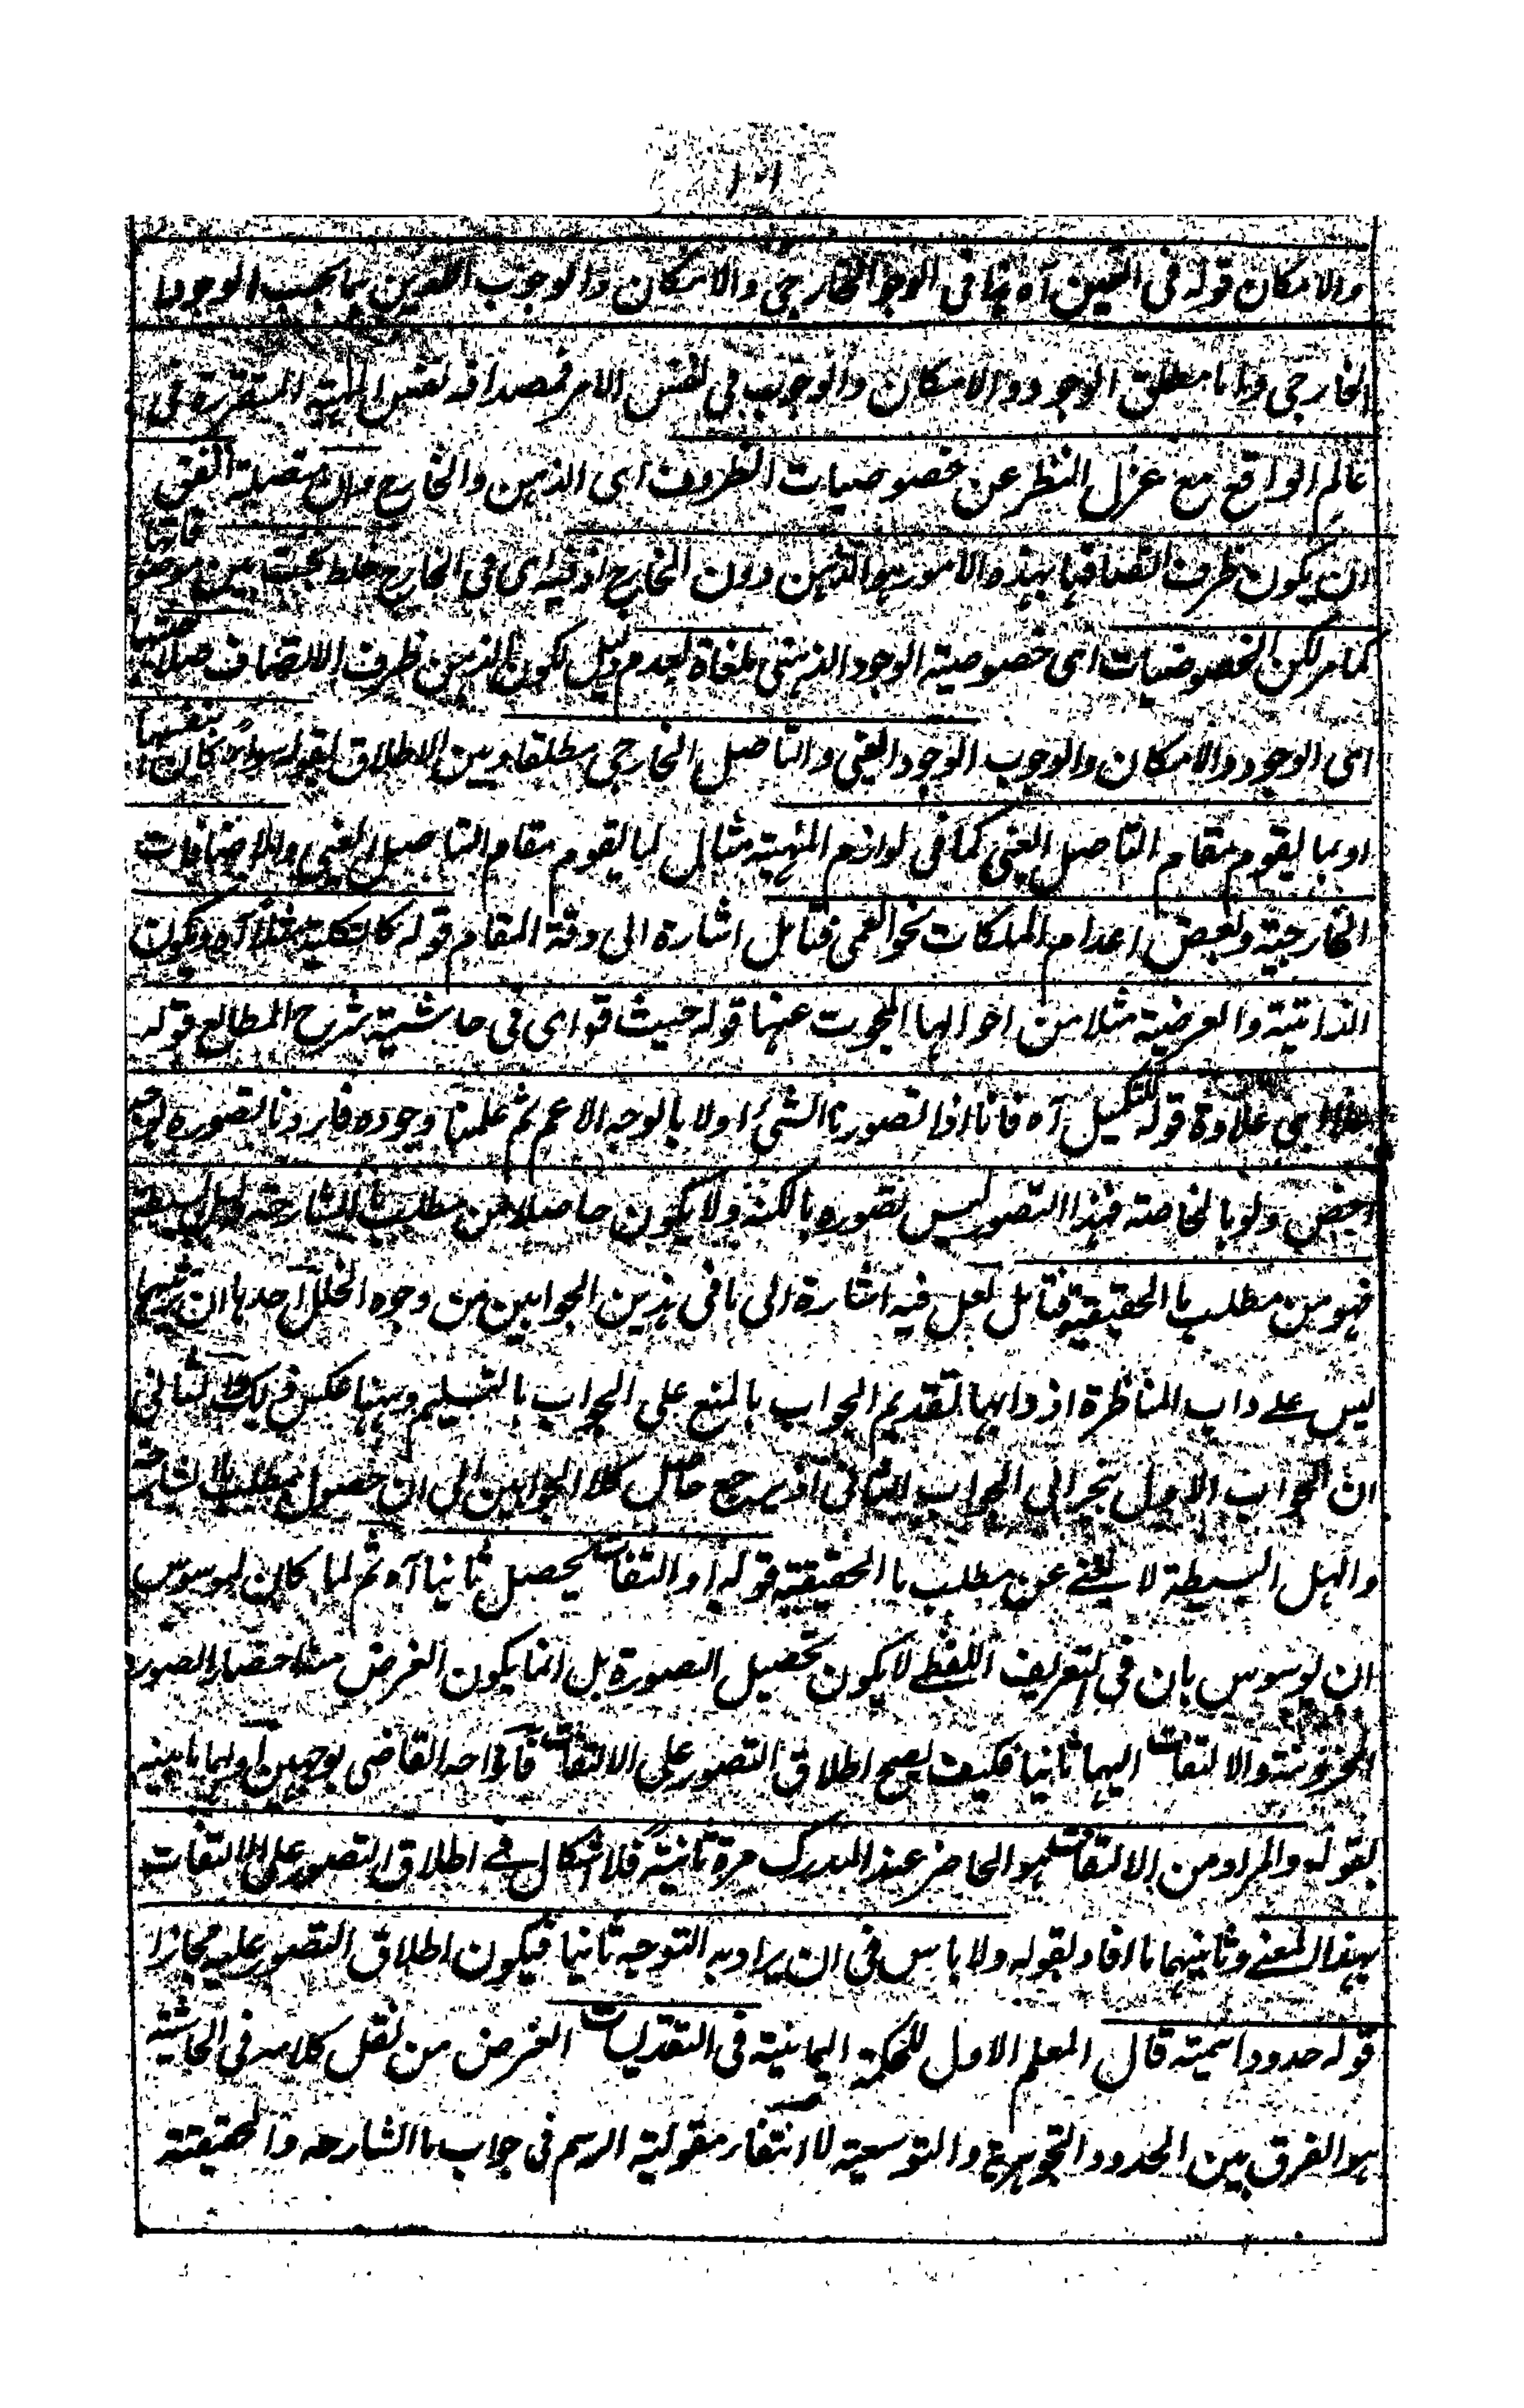 ١٠١
والامكان قوله فى التعين آه فى الوجود الخارجى والامكان والوجوب اللذين بما بحسب الوجود
الخارجى واما مطلق الوجود والامكان والوجوب فى نفس الامر فمصداقه نفس الماهية المتقررة فى
عالم الواقع مع عزل النظر عن خصوصيات الظروف اى الذهن والخارج وان اتفق
ان يكون ظرف اتصافها بهذه الامور هو الذهن دون الخارج اذ ليس فى الخارج خلط بحت بين
كما مر لكن الخصوصيات اى خصوصية الوجود الذهنى ملغاة لعدم دخل لكون الذهن ظرف الاتصاف
اى الوجود والامكان والوجوب الوجود العينى والتاصل الخارجى مطلقا وبين الاطلاق بقوله سواء كان بنفسها
او بما يقوم مقام التاصل العينى كما فى لوازم المهية مثال لما يقوم مقام التاصل العينى والاضافات
الخارجية وبعض اعدام الملكات نحو العمى فتامل اشارة الى دقة المقام قوله كالكلية مثلا آه ويكون
الذاتية والعرضية مثلا من احوالها المبحوث عنها قوله حيث قال اى فى حاشية شرح المطالع قوله
هذا اى علاوة قوله للتكميل آه فانا اذا تصورنا الشئ اولا بالوجه الاعم ثم علمنا وجوده فاردنا تصوره بوجه
اخص ولو بالخاصة فهذا التصور ليس تصوره بالكنه ولا يكون حاصلا من مطلب ما الشارحة
فهو من مطلب ما الحقيقية فتامل لعل فيه اشارة الى ما فى هذين الجوابين من وجوه الخلل احدها ان ترتيبهما
ليس على داب المناظرة اذ دابها تقديم الجواب بالمنع على الجواب بالتسليم وههنا عكس ذلك الثانى
ان الجواب الاول ينجر الى الجواب الثانى اذ يرجع حاصل كلا الجوابين الى ان حصول مطلب ما الشارحة
والهل البسيطة لا يغنى عن مطلب ما الحقيقية قوله او التفات يحصل ثانيا آه ثم لما كان لموسوس
ان يوسوس بان فى التعريف اللفظى لا يكون تحصيل الصورة بل انما يكون الغرض منه احضار الصورة
المخزونة والالتفات اليها ثانيا فكيف يصح اطلاق التصور على الالتفات فازاحه القاضى بوجهين اولهما ما بينه
بقوله والمراد من الالتفات هو الحاضر عند المدرك مرة ثانية فلا اشكال فى اطلاق التصور على الالتفات
بهذا المعنى وثانيهما ما افاد بقوله ولا باس فى ان يراد به التوجه ثانيا فيكون اطلاق التصور عليه مجازا
قوله حدودا اسمية قال المعلم الاول للحكمة اليمانية فى التقديسات الغرض من نقل كلامه فى الحاشية
هو الفرق بين الحدود التجوهرية والتوسعية لا انتفاء مقولية الرسم فى جواب ما الشارحة والحقيقية